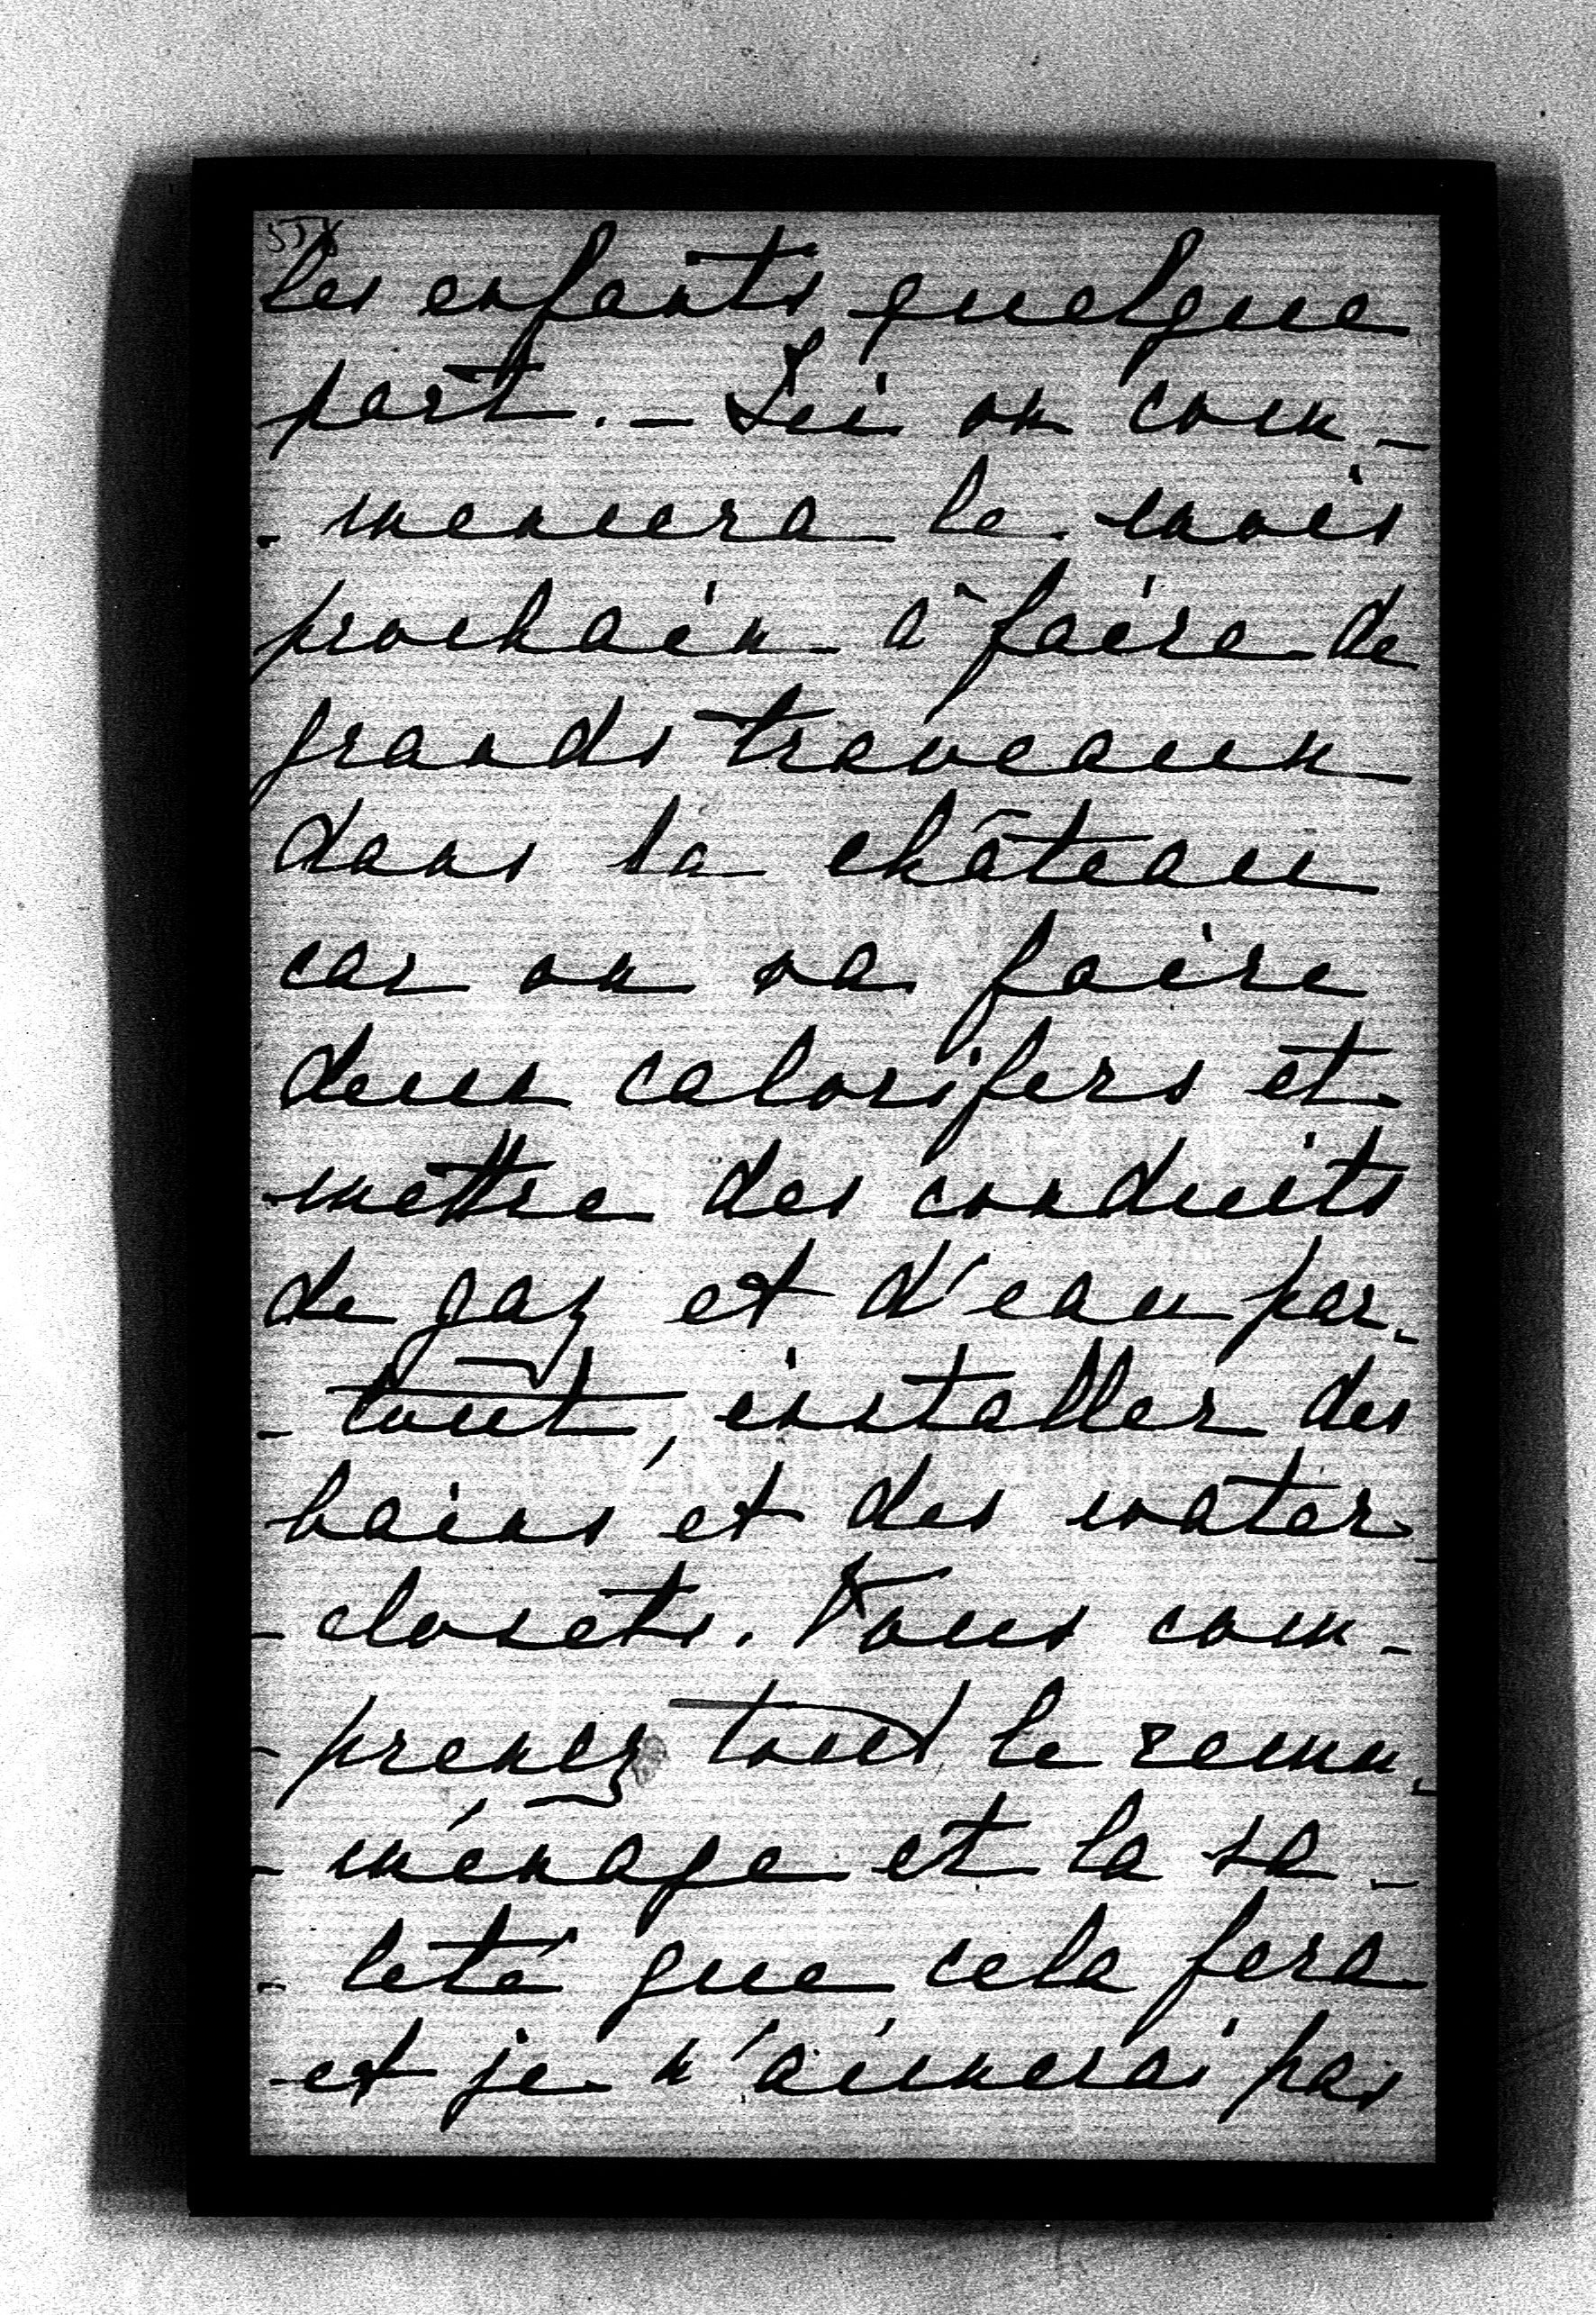 les enfants quelque
part. - Ici on com-
- mencera le mois
prochain à faire de
grands traveaux
dans la château
car on va faire
deux calorifers et
mettre des conduits
de gaz et d'eau par-
- tout, installer des
bains et des water-
- closets. Vous com-
- prenez tout le remu-
- ménage et la sa-
- leté que cela fera
et je n'aimerai pas